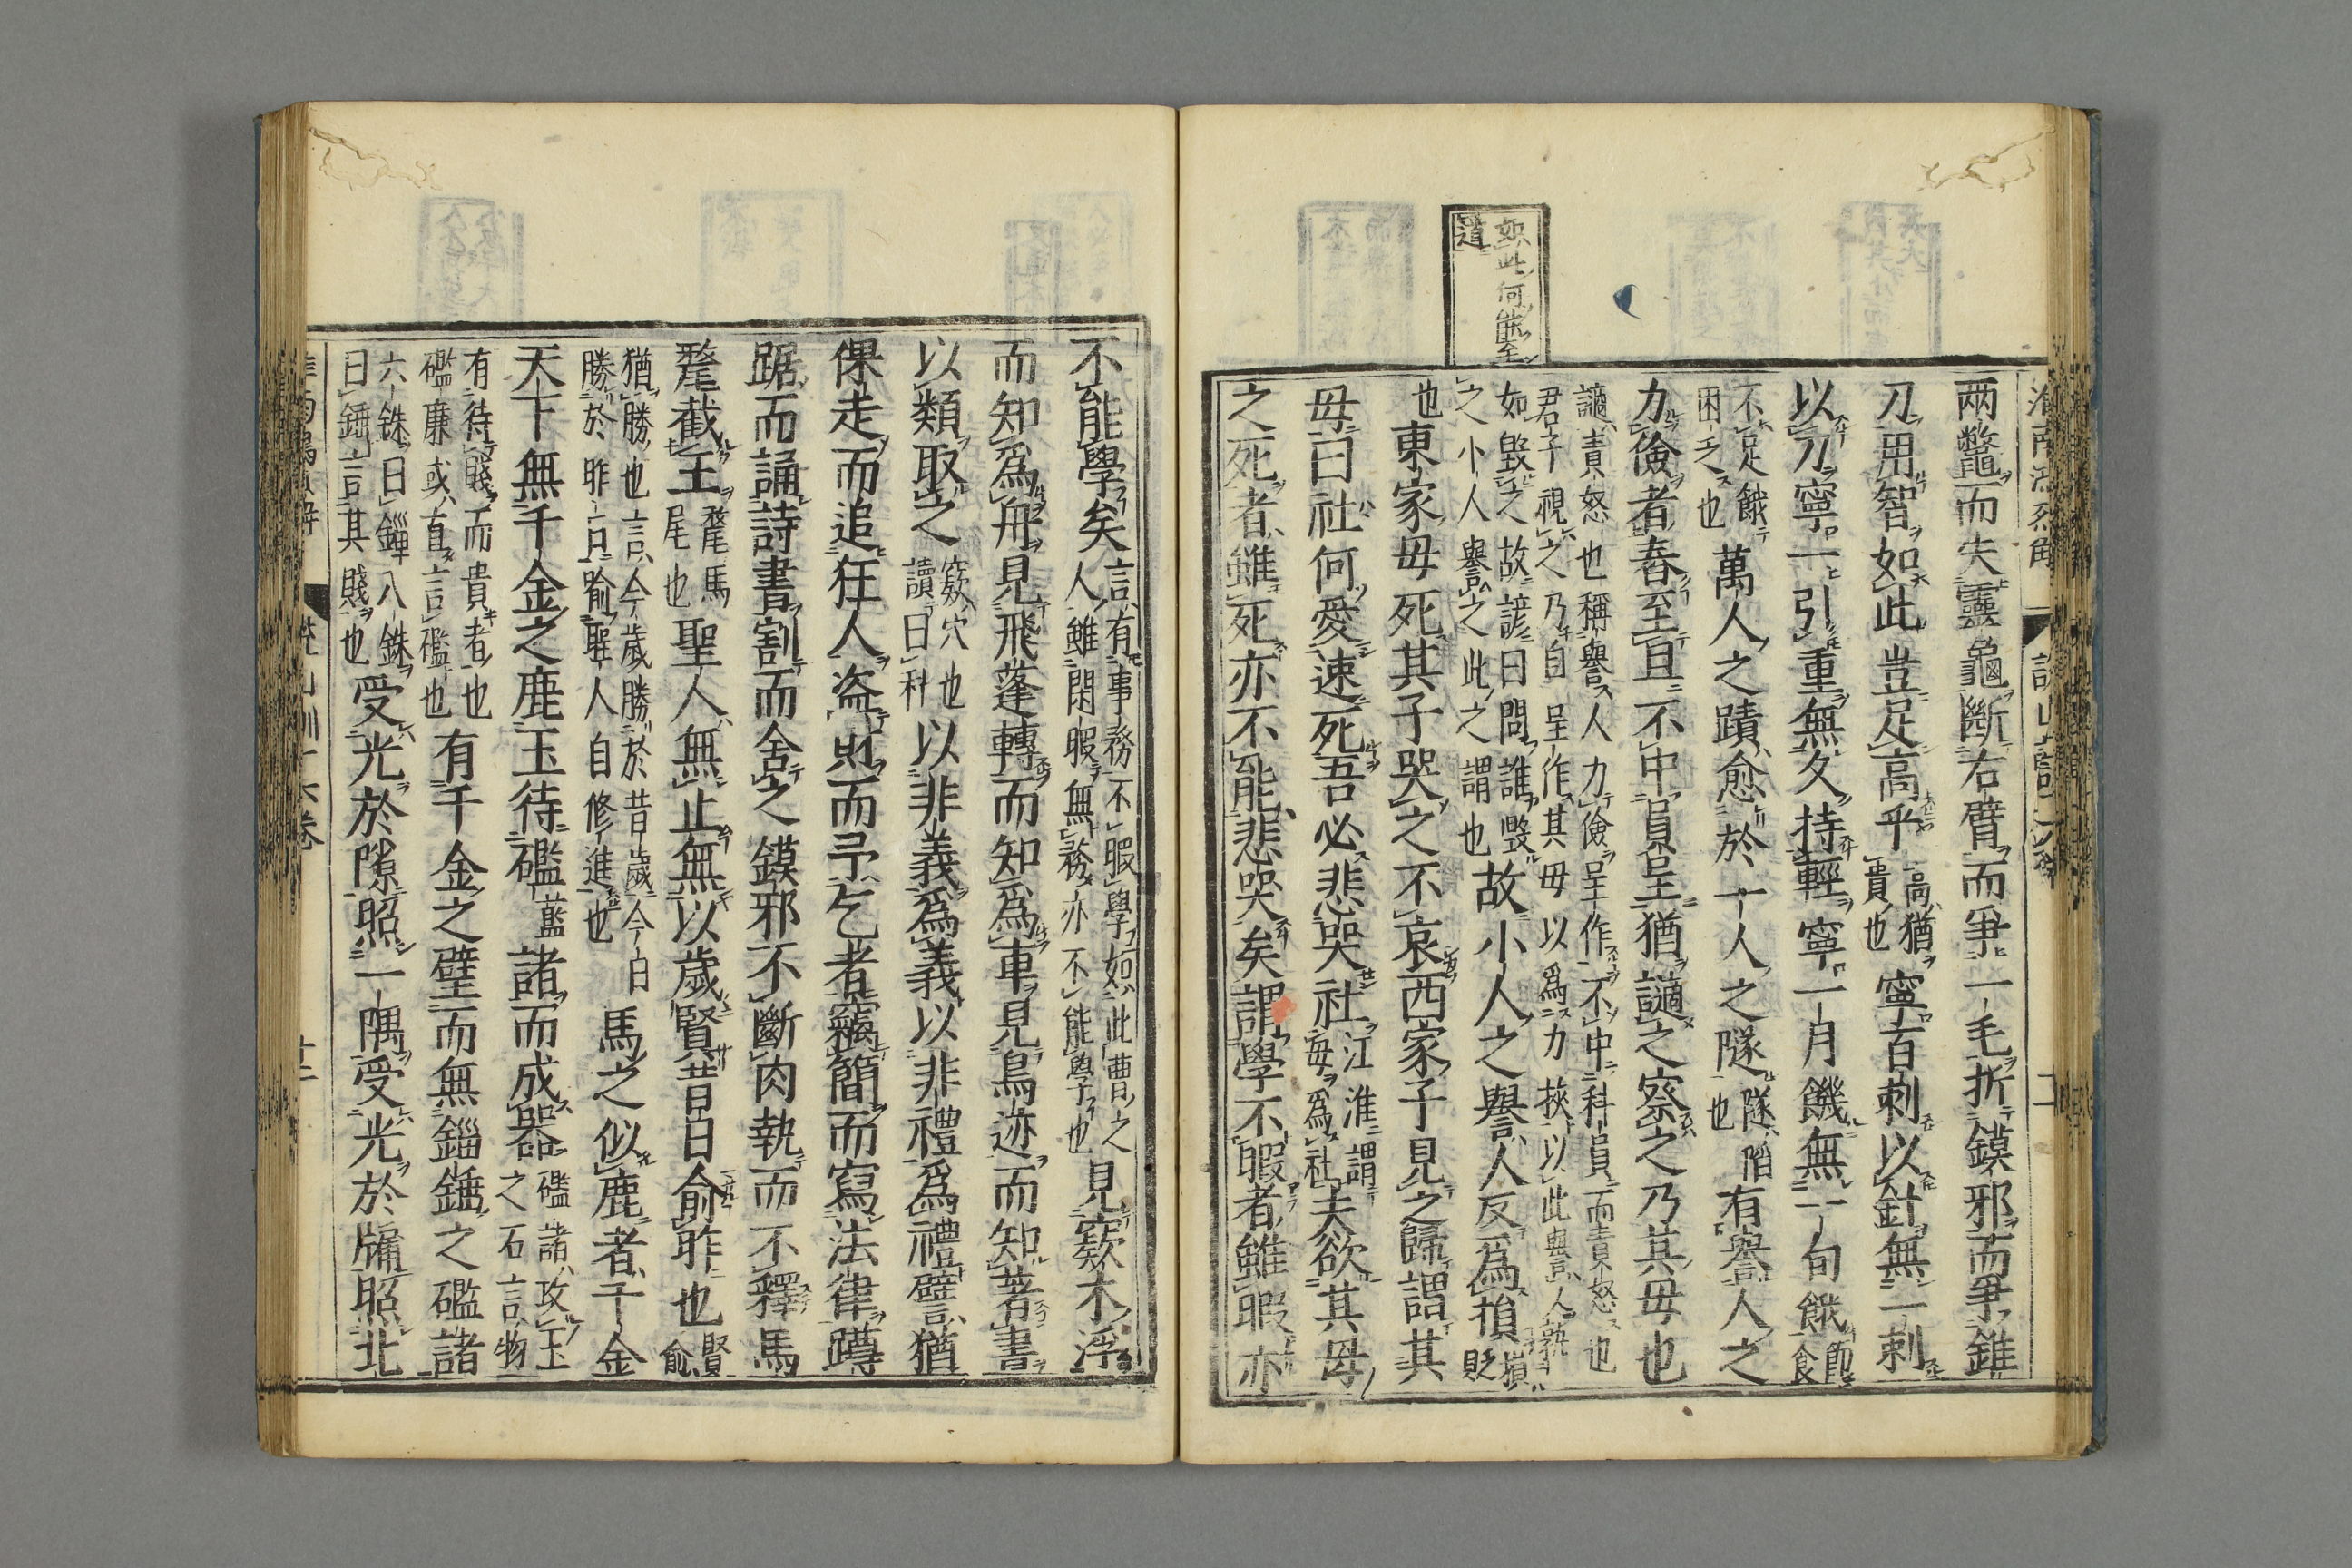 如此何能全
道
兩鼈而失靈龜斷右臂而爭一毛折鏌邪而爭錐
刀用智如此豈足高乎高猶貴也寧百刺以針無一刺
以刀寧一引重無久持輕寧一月饑無一旬餓飢食
不足餓困乏也萬人之蹪愈於一人之隧隧陷也有譽人之
力儉者舂至旦不中員呈猶讁之察之乃其母也
讁責怒也稱譽人力儉呈作不中科員而責怒也
君子視之乃自呈作其母以爲力挾以此譽人孰
如毀之故諺曰問誰毀
之小人譽之此之謂也故小人之譽人反爲損損貶
也東家母死其子哭之不哀西家子見之歸謂其
母曰社何愛速死吾必悲哭社江淮謂母爲社夫欲其母
之死者雖死亦不能悲哭矣謂學不暇者雖暇亦
不能學矣言有事務不暇學如此曹之人雖閑暇無務亦不能學也見窾木浮
而知爲舟見飛蓬轉而知爲車見鳥迹而知著書
以類取之窾穴也讀曰科以非義爲義以非禮爲禮譬猶
倮走而追狂人盜財而予乞者竊簡而寫法律蹲
踞而誦詩書割而舍之鏌邪不斷肉執而不釋馬
氂截玉氂馬尾也聖人無止無以歲賢昔日俞昨也賢俞
猶勝也言今歲勝於昔歲今日
勝於昨日喻聖人自修進也馬之似鹿者千金
天下無千金之鹿玉待礛藍諸而成器礛諸攻玉之石言物
有待賤而貴者也
礛廉或直言礛也有千金之璧而無錙錘之礛諸
六銖曰錙八銖
曰錘言其賤也受光於隙照一隅受光於牖照北